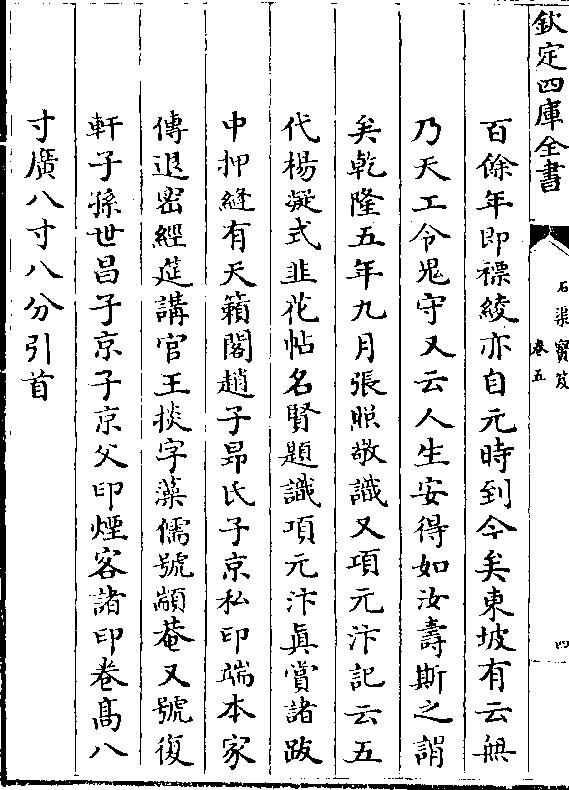 欽定四庫全書
石渠寳笈
卷五
四
百餘年即褾綾亦自元時到今矣東坡有云無
乃天工令鬼守又云人生安得如汝壽斯之謂
矣乾隆五年九月張照敬識又項元汴記云五
代楊凝式韭花帖名賢題識項元汴真賞諸跋
中押縫有天籟閣趙子昂氏子京私印端本家
傳退密經莚講官王掞字藻儒號顓菴又號復
軒子孫世昌子京子京父印煙客諸印卷髙八
寸廣八寸八分引首